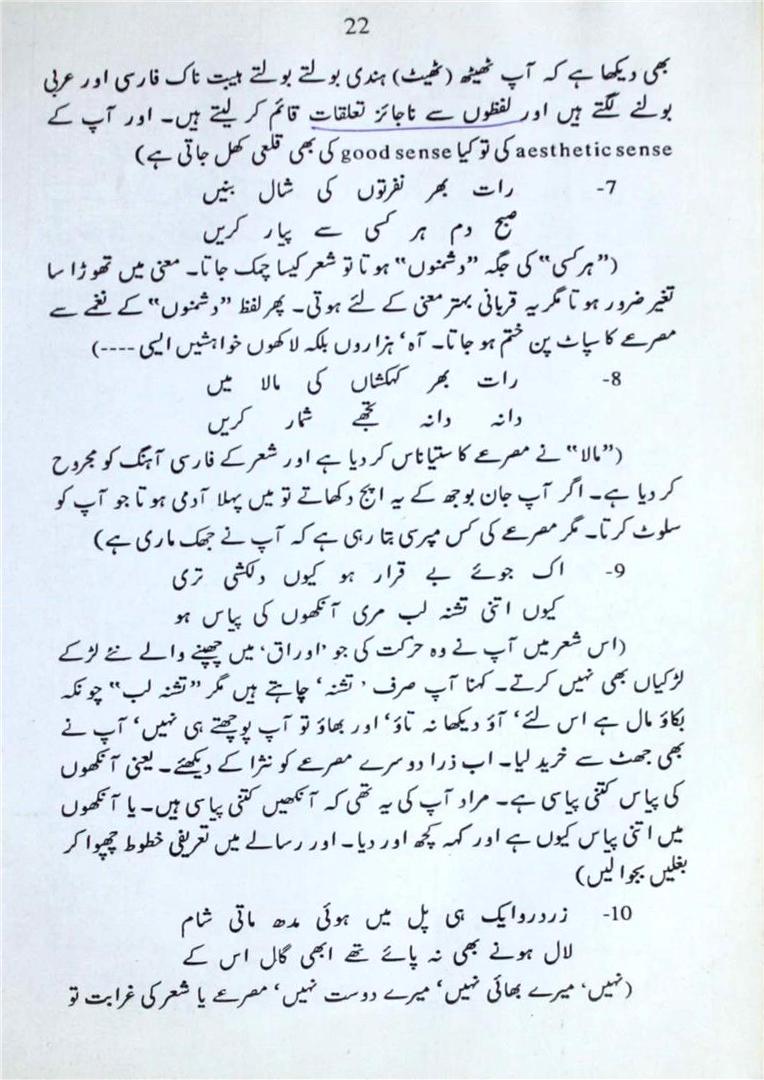 22
بھی دیکھا ہے کہ آپ ٹھیٹھ (ٹھیٹ) ہندی بولتے بولتے ہیبت ناک فارسی اور عربی
بولنے لگتے ہیں اور لفظوں سے ناجائز تعلقات قائم کر لیتے ہیں۔ اور آپ کے
aesthetic sense کی تو کیا good sense کی بھی قلعی کھل جاتی ہے)
7- رات بھر نفرتوں کی شال بنیں
صبح دم ہر کسی سے پیار کریں
(”ہر کسی“ کی جگہ ”دشمنوں“ ہوتا تو شعر کیسا چمک جاتا۔ معنی میں تھوڑا سا
تغیر ضرور ہوتا مگر یہ قربانی بہتر معنی کے لئے ہوتی۔ پھر لفظ ”دشمنوں“ کے نغمے سے
مصرعے کا سپاٹ پن ختم ہو جاتا۔ آہ‘ ہزاروں بلکہ لاکھوں خواہشیں ایسی ----)
8- رات بھر کہکشاں کی مالا میں
دانہ دانہ تجھے شمار کریں
(”مالا“ نے مصرعے کا ستیاناس کر دیا ہے اور شعر کے فارسی آہنگ کو مجروح
کر دیا ہے۔ اگر آپ جان بوجھ کے یہ اپج دکھاتے تو میں پہلا آدمی ہوتا جو آپ کو
سلوٹ کرتا۔ مگر مصرعے کی کس مپرسی بتا رہی ہے کہ آپ نے جھک ماری ہے)
9- اک جوئے بے قرار ہو کیوں دلکشی تری
کیوں اتنی تشنہ لب مری آنکھوں کی پیاس ہو
(اس شعر میں آپ نے وہ حرکت کی جو ’اوراق‘ میں چھپنے والے نئے لڑکے
لڑکیاں بھی نہیں کرتے۔ کہنا آپ صرف ’تشنہ‘ چاہتے ہیں مگر ”تشنہ لب“ چونکہ
بکاؤ مال ہے اس لئے‘ آؤ دیکھا نہ تاؤ‘ اور بھاؤ تو آپ پوچھتے ہی نہیں‘ آپ نے
بھی جھٹ سے خرید لیا۔ اب ذرا دوسرے مصرعے کو نثرا کے دیکھئے۔ یعنی آنکھوں
کی پیاس کتنی پیاسی ہے۔ مراد آپ کی یہ تھی کہ آنکھیں کتنی پیاسی ہیں۔ یا آنکھوں
میں اتنی پیاس کیوں ہے اور کہہ کچھ اور دیا۔ اور رسالے میں تعریفی خطوط چھپوا کر
بغلیں بجوا لیں)
10- زرد رو ایک ہی پل میں ہوئی مدھ ماتی شام
لال ہونے بھی نہ پائے تھے ابھی گال اس کے
(نہیں‘ میرے بھائی نہیں‘ میرے دوست نہیں‘ مصرعے یا شعر کی غرابت تو